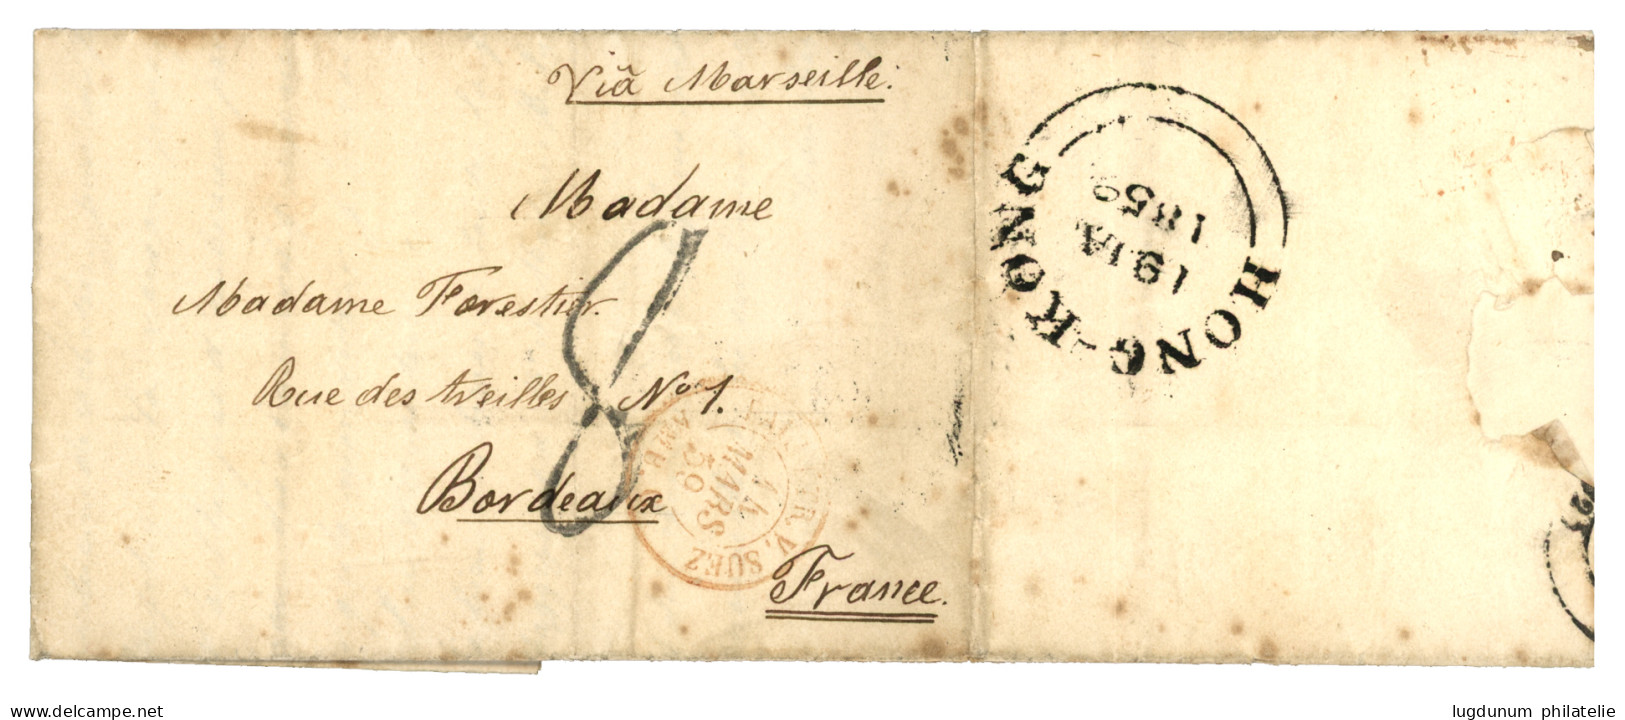 Viâ Marseille.
Madame
Madame Forestier.
Rue des treilles No 1.
Bordeaux
France.
8
V. SUEZ
AMB.
MARS
59
HONG-KONG
19 JA
1859
www.delcampe.net
lugdunum philatelie